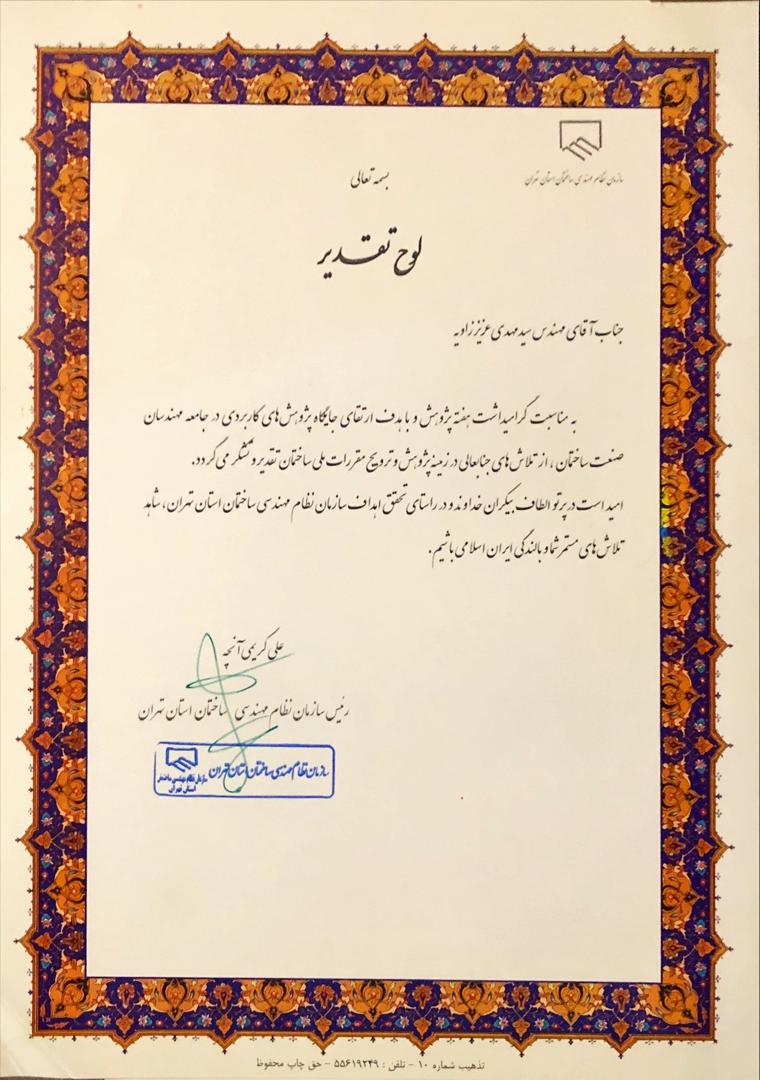 سازمان نظام مهندسی ساختمان استان تهران
بسمه تعالی
لوح تقدیر
جناب آقای مهندس سید مهدی عزیززاویه
به مناسبت گرامیداشت هفته پژوهش و با هدف ارتقای جایگاه پژوهش‌های کاربردی در جامعه مهندسان
صنعت ساختمان، از تلاش‌های جنابعالی در زمینه پژوهش و ترویج مقررات ملی ساختمان تقدیر و تشکر می‌گردد.
امید است در پرتو الطاف بیکران خداوند و در راستای تحقق اهداف سازمان نظام مهندسی ساختمان استان تهران، شاهد
تلاش‌های مستمر شما و بالندگی ایران اسلامی باشیم.
علی کریمی آنچه
رئیس سازمان نظام مهندسی ساختمان استان تهران
سازمان نظام مهندسی ساختمان استان تهران
سازمان نظام مهندسی ساختمان
استان تهران
تذهیب شماره ۱۰ - تلفن : ۵۵۶۱۹۲۴۹ - حق چاپ محفوظ